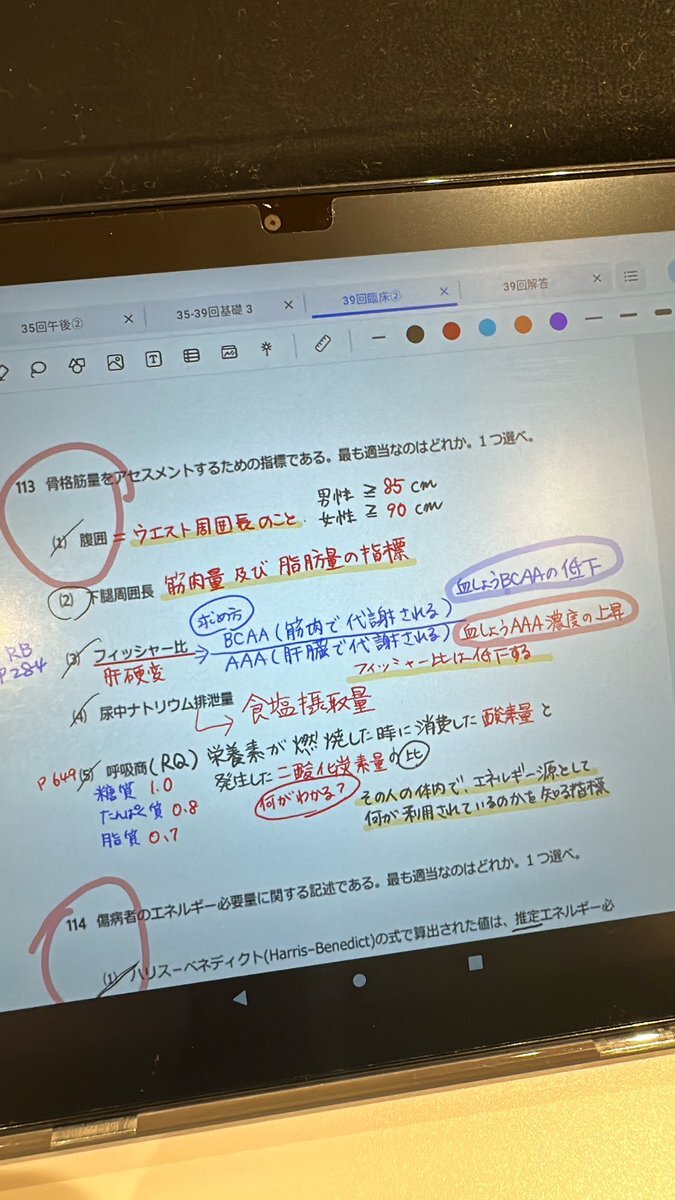 35回午後②
35-39回基礎 3
39回臨床②
39回解答
113 骨格筋量をアセスメントするための指標である。最も適当なのはどれか。1つ選べ。
男性 ≧ 85 cm
女性 ≧ 90 cm
(1) 腹囲 = ウエスト周囲長のこと
(2) 下腿周囲長 筋肉量及び脂肪量の指標
求め方
血しょうBCAAの低下
RB
P284
(3) フィッシャー比 → BCAA (筋肉で代謝される)
AAA (肝臓で代謝される)
血しょうAAA濃度の上昇
肝硬変
フィッシャー比は低下する
(4) 尿中ナトリウム排泄量
→ 食塩摂取量
P649 (5) 呼吸商 (RQ) 栄養素が燃焼した時に消費した酸素量と
発生した二酸化炭素量の比
糖質 1.0
たんぱく質 0.8
脂質 0.7
何がわかる?
その人の体内で、エネルギー源として
何が利用されているのかを知る指標
114 傷病者のエネルギー必要量に関する記述である。最も適当なのはどれか。1つ選べ。
(1) ハリス－ベネディクト(Harris-Benedict)の式で算出された値は、推定エネルギー必